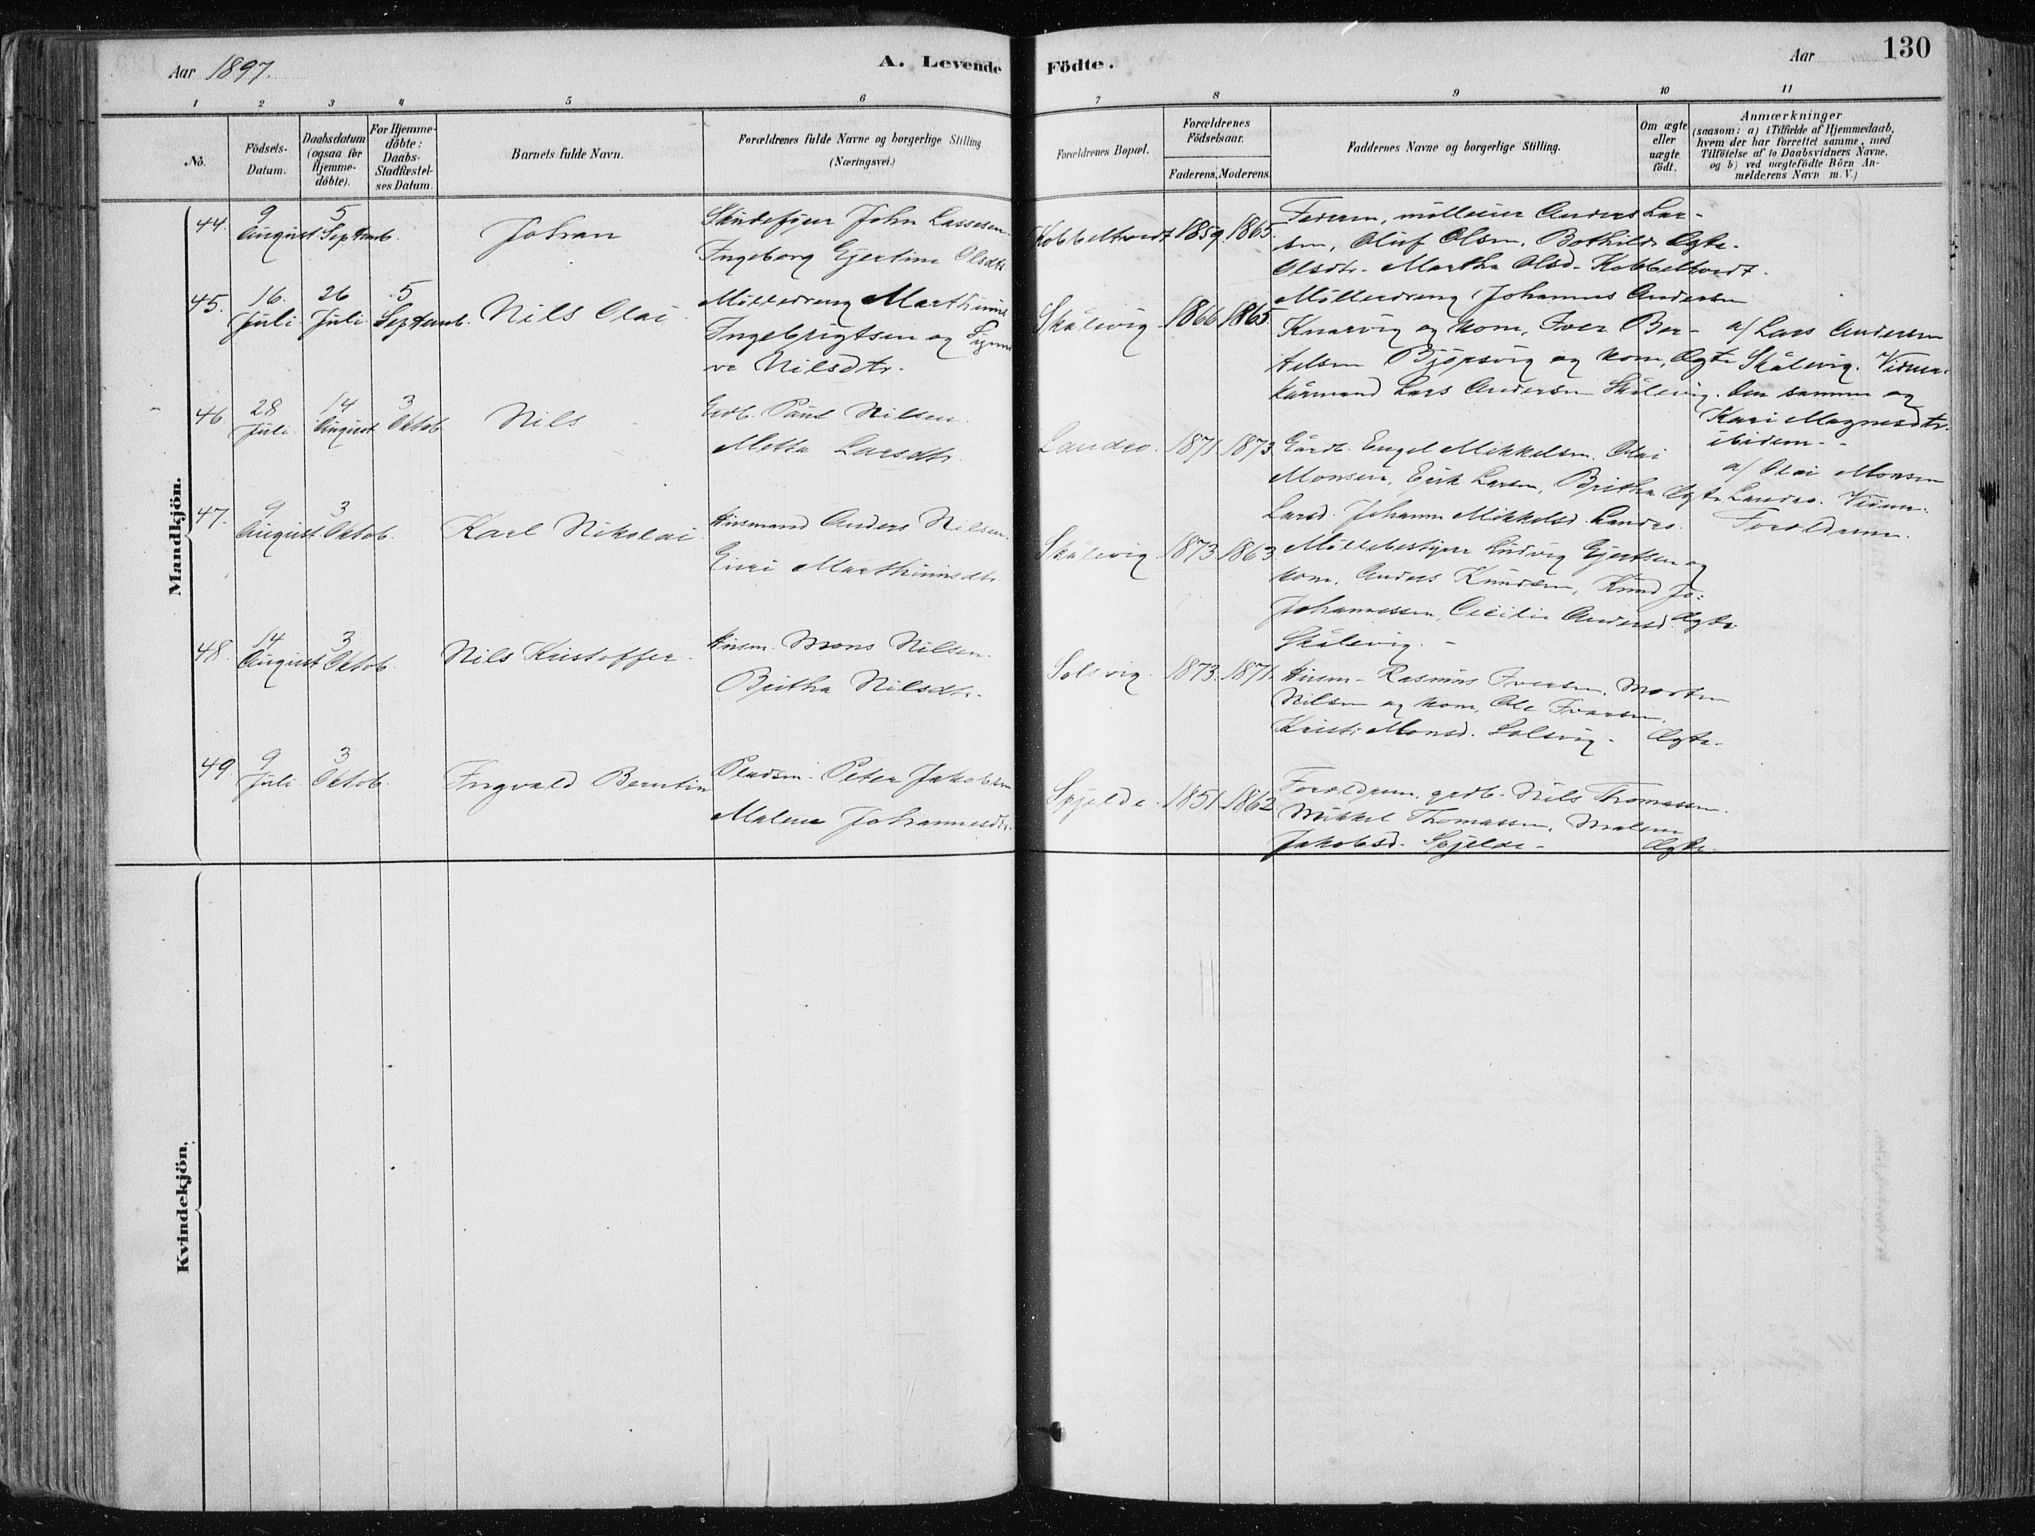 Aar 1897.
A. Levende Födte.
Aar
130
1 2 3 4 5 6 7 8 9 10 11
No.
Födsels-Datum.
Daabsdatum (ogsaa for Hjemme-döbte).
For Hjemme-döbte: Daabs-Stadfæstel-ses Datum.
Barnets fulde Navn.
Forældrenes fulde Navne og borgerlige Stilling
(Næringsvei.)
Forældrenes Bopæl.
Forældrenes Födselsaar.
Faderens. Moderens.
Faddernes Navne og borgerlige Stilling.
Om ægte eller uægte födt.
Anmærkninger
(saasom: a) i Tilfælde af Hjemmedaab, hvem der har forrettet samme, med Tilföielse af to Daabsvidners Navne, og b) ved uægtefödte Börn An-melderens Navn m. V.)
Mandkjön.
44. 9 August 5 Septemb. Johan
Skudefører John Lassesen.
Ingeborg Gjertine Olsdtr
Kobbeltvedt 1859. 1865.
Faderen, mølleeier Anders Lar-
sen, Oluf Olsen, Bothilde Ægte.
Olsdtr. Martha Olsd. Kobbeltvedt.
45. 16. Juli 26 Juli 5 Septemb. Nils Olai
Mølledreng Marthinus
Ingebrigtsen og Synne
ve Nilsdtr.
Skålevig 1866 1865
Møllerdreng Johannes Andersen
Knarvig og kone, Iver Ber-
telsen Bjørsvig og kone, Ægte
kårmand Lars Andersen Skålevig.
a/ Lars Andersen
Skålevig. Vidner.
den samme og
Kari Magnesdtr.
ibidem.
46 28 Juli 14 August 3 Oktob Nils
Grdb. Paul Nilsen.
Metta Larsdtr.
Landro. 1871. 1873.
Gårdb. Engel Mikkelsen. Olai
Monsen, Erik Larsen, Britha Ægte
Larsd. Johanne Mikkelsd. Landro.
a/ Olai Monsen
Landro. Vidner.
Forældrene.
47. 9 August 3 Oktob. Karl Nikolai
Husmand Anders Nilsen.
Guri Marthinusdtr.
Skålevig 1873. 1863.
Møllebestyrer Ludvig Gjertsen og
kone, Anders Knudsen, Knud Jo:
Johannessen, Cecilie Andersd. Ægte
Skålevig.
48. 14 August 3 Oktob. Nils Kristoffer
Husm. Mons Nilsen.
Britha Nilsdtr.
Solsvig. 1873. 1871.
Husm. Rasmus Iversen, Morten
Nilsen og kone, Ole Iversen,
Kristi Monsd. Solsvig. Ægte.
49. 9 Juli 3 Oktob. Ingvald Berntin
Pladsm. Peter Jakobsen
Malene Johannesdtr.
Spjelde. 1851. 1862
Forældrene, grdb. Nils Thomassen.
Mikkel Thomassen, Malene
Jakobsd. Spjelde. Ægte.
Kvindekjön.